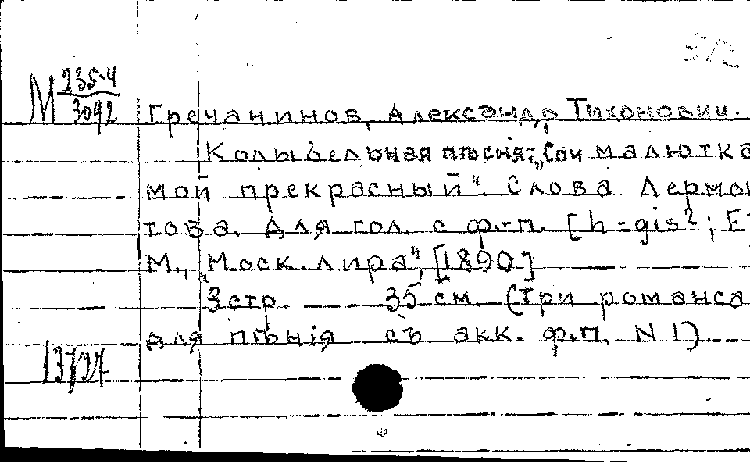 М 2354
3092
Гречанинов, Александр Тихонович.
Колыбельная пѣсня: „Спи малютка
мой прекрасный". Слова Лермон
това. Для гол. с ф.-п. [h-gis²; E
М., „Моск. лира", [1890]
3 стр. 35 см. (Три романса
для пѣнія съ акк. ф.п. N 1)
13727